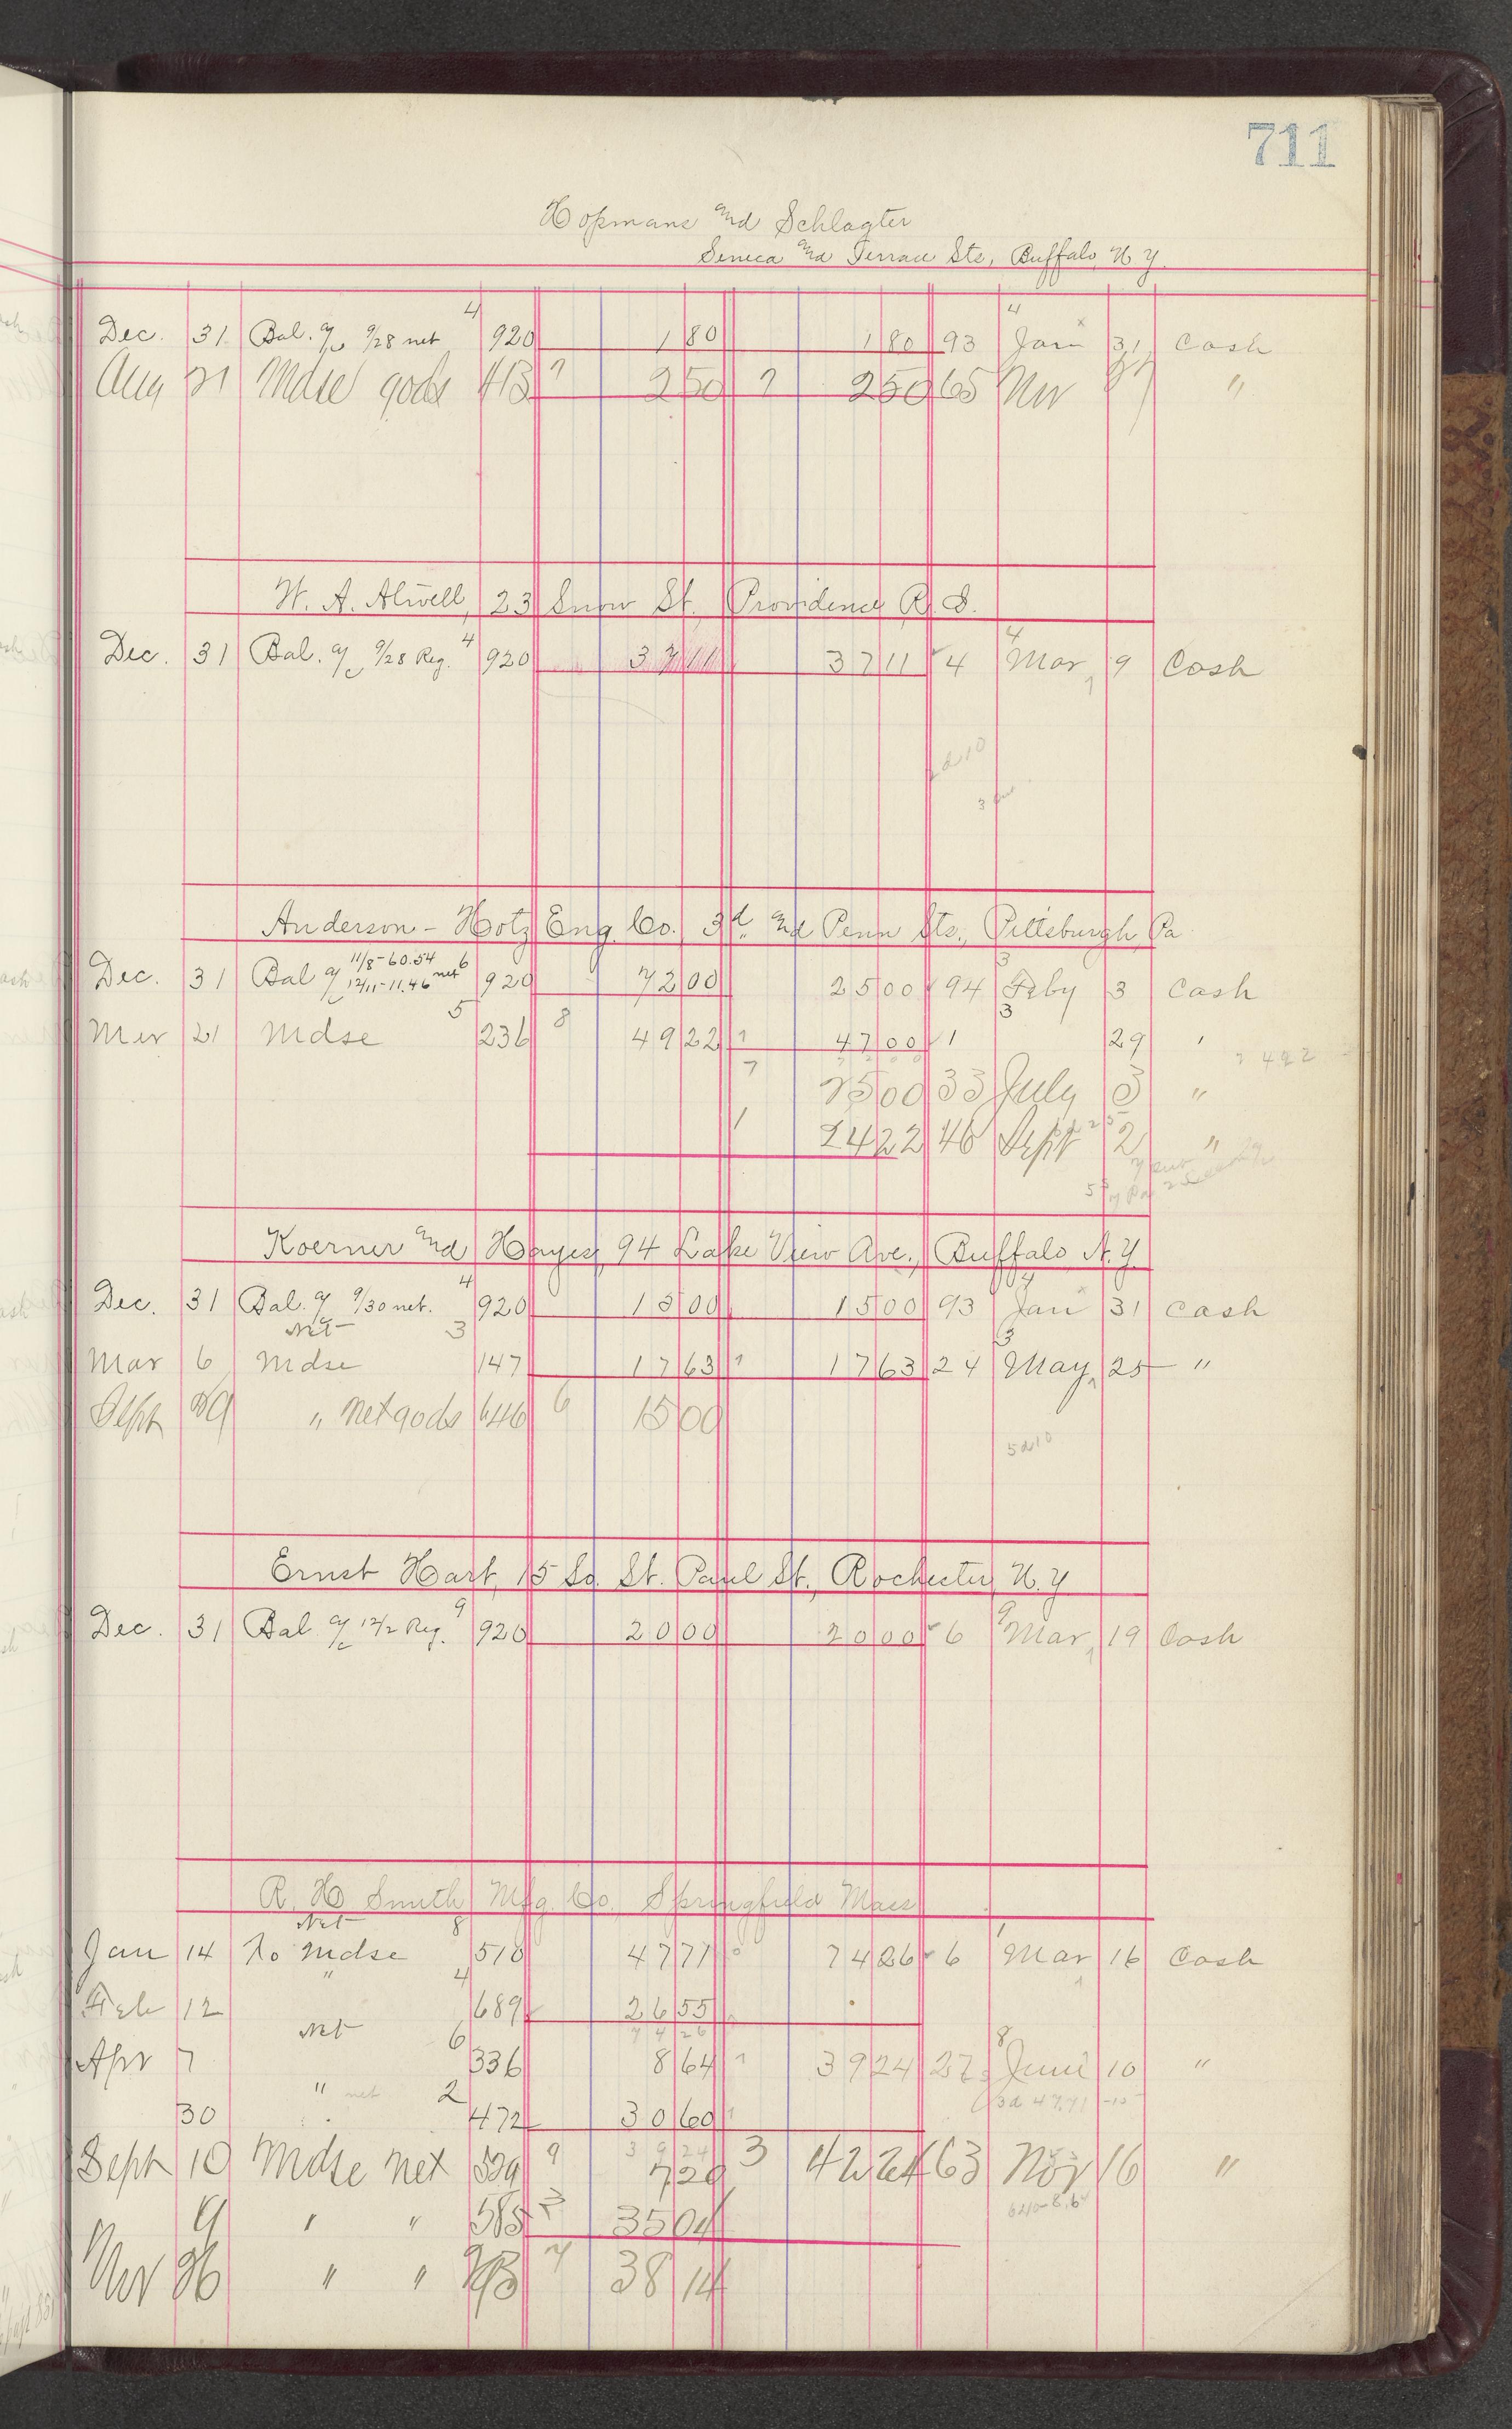 711
Hopmans and Schlagter
Seneca and Terrace Sts, Buffalo, N Y.
4 4
Dec. 31 Bal. a/c 9/28 net 920 1 80 1 80 93 Jan 31 Cash
Aug 21 Mdse gods 413 7 2 50 7 2 50 65 Nov "
W. A. Alwell, 23 Snow St. Providence R. I.
4 4
Dec. 31 Bal. a/c 9/28 Reg. 920 37 11 37 11 4 Mar 9 Cash
Anderson-Hotz Eng. Co. 3d and Penn Sts., Pittsburgh, Pa
11/8-60.54 6 3
Dec. 31 Bal a/c 12/11-11.46 net 920 72 00 25 00 94 Feby 3 Cash
5 3
Mar 21 Mdse 236 8 49 22 1 47 00 1 29 '
7 25 00 33 July 3 "
1 24 22 46 Sept 2 "
Koerner and Hayes, 94 Lake View Ave., Buffalo N.Y.
4 4
Dec. 31 Bal. a/c 9/30 net. 920 15 00 15 00 93 Jan 31 Cash
Net 3 3
Mar 6 Mdse 147 17 63 1 17 63 24 May 25 "
Sept 29 " Net gods 646 6 15 00
5210
Ernst Hart, 15 So. St. Paul St., Rochester, N.Y
9 9
Dec. 31 Bal a/c 12/2 Reg. 920 20 00 20 00 6 Mar 19 Cash
R. H Smith Mfg. Co. Springfield Mass
Net 8 1
Jan 14 To Mdse 510 47 71 74 26 6 Mar 16 Cash
" 4
Feb 12 689 26 55
74 26
Net 6 8
Apr 7 336 8 64 1 39 24 27 June 10 "
" net 2
30 472 30 60
39 24
Sept 10 Mdse net 529 9 7 20 3 42 24 63 Nov 16 "
9 " " 585 3 35 04
Nov 26 " " 7 38 14